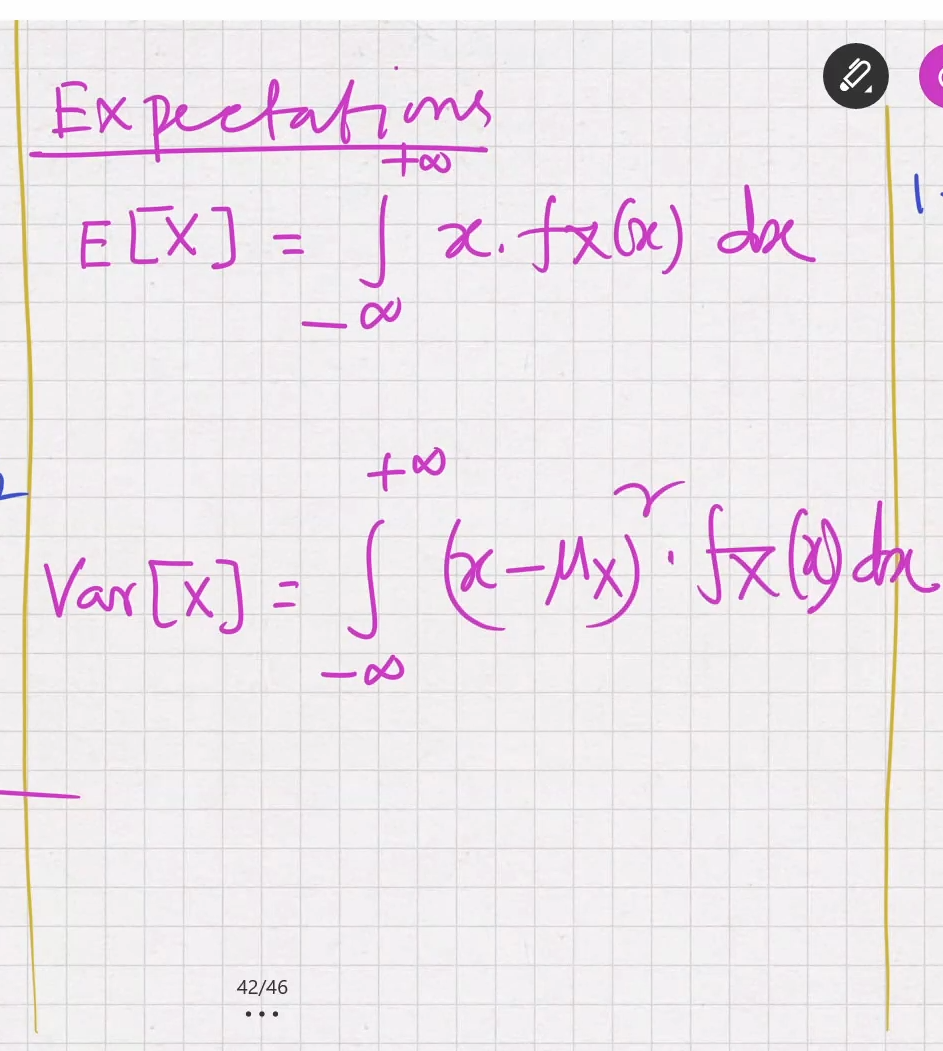 Expectations
E[X] = ∫_{-∞}^{+∞} x. f_X(x) dx
Var[X] = ∫_{-∞}^{+∞} (x-μ_X)^2 . f_X(x) dx
42/46